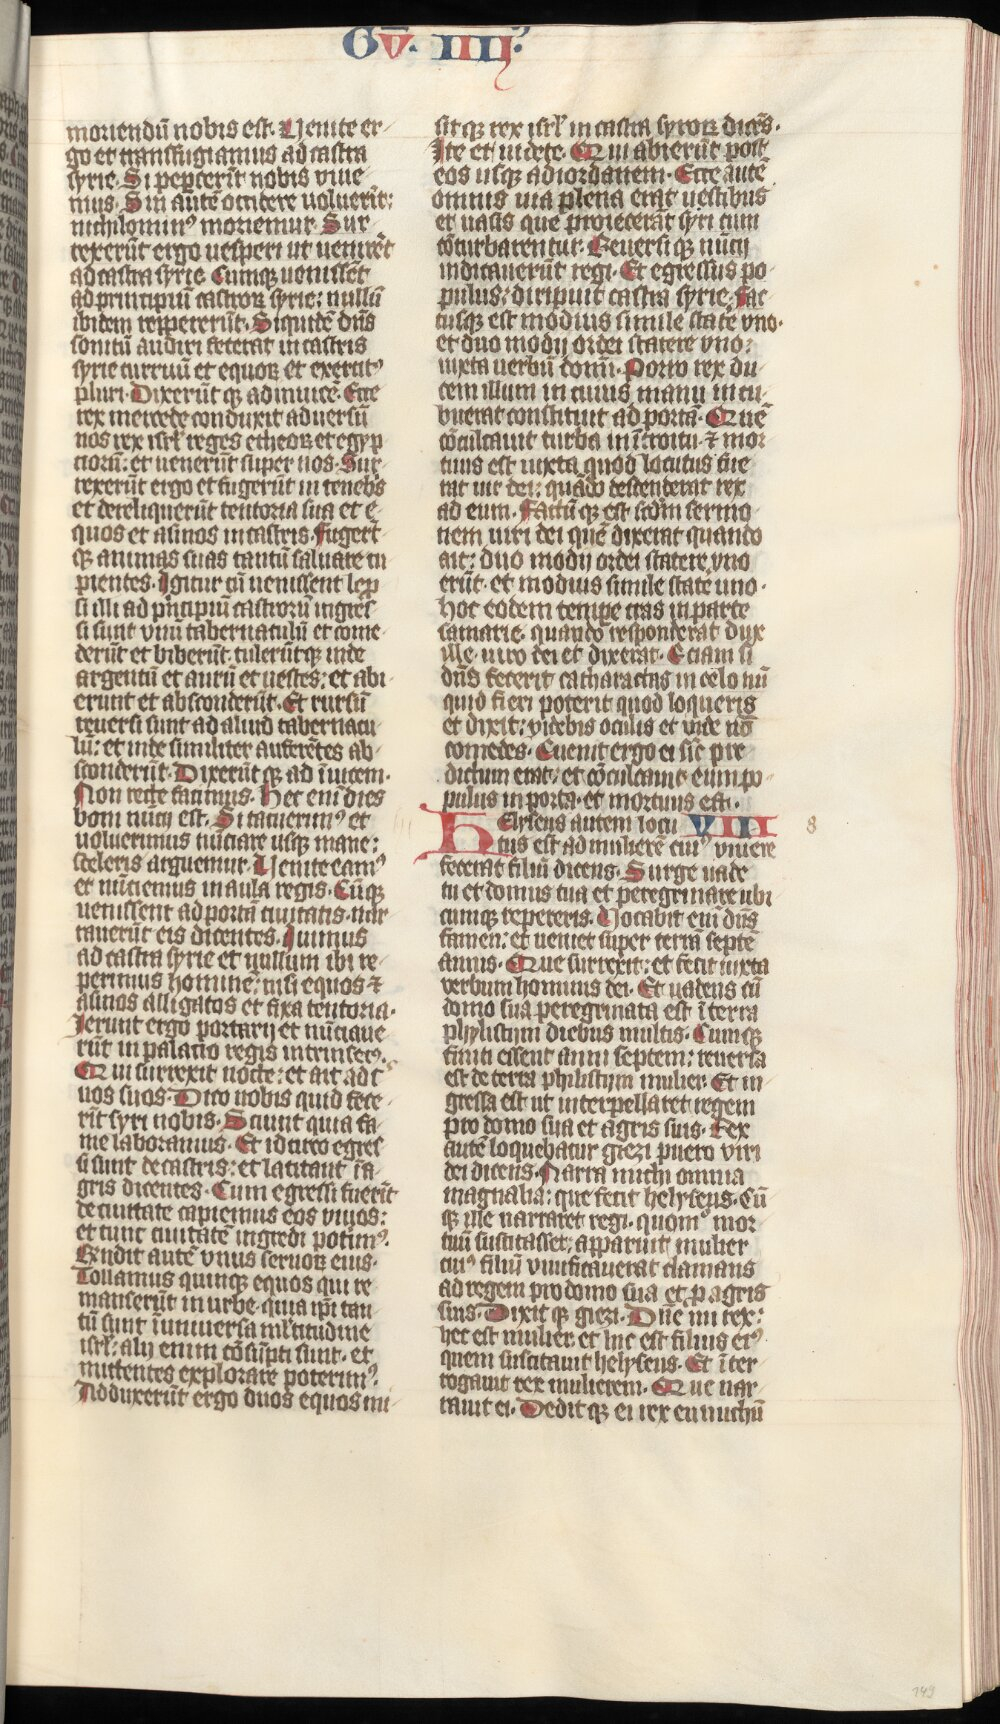 Gv̄. IIII.
moriendū nobis est. Uenite er-
go et transfugiamus ad castra
syrie. Si pepercerīt nobis viue-
mus. Sin autē occidere uoluerīt:
nichilomin⁹ moriemur. Sur-
rexerūt ergo uesperi ut uenirēt
ad castra syrie. Cumqꝫ uenissēt
ad principiū castroꝝ syrie: nullū
ibidem reppererūt. Siquidē dn̄s
sonitū audiri fecerat in castris
syrie curruū et equoꝝ et exercit⁹
pluri. Dixerūt qꝫ ad inuicē. Ecce
rex mercede conduxit aduersū
nos rex isrl̄ reges etheoꝝ et egyp
ciorū: et uenerūt super nos. Sur-
rexerūt ergo et fugerūt in teneb̄s
et dereliquerūt tentoria sua et e-
quos et asinos in castris. Fugerūt
qꝫ animas suas tantū saluare cu
pientes. Igitur cū uenissent lep̄
si illi ad p̄ncipiū castrorū ingres̄
si sunt vnū tabernaculū et come-
derūt et biberūt. tulerūtqꝫ inde
argentū et aurū et uestes: et abi-
erunt et absconderūt. Et rursū
reuersi sunt ad aliud tabernacu
lū: et inde similiter auferētes ab-
sconderūt. Dixerūt qꝫ ad īuicem.
Non recte facimus. Hec enī dies
boni nūcij est. Si tacuerim⁹ et
uoluerimus nūciare usqꝫ mane:
sceleris arguemur. Uenite eam⁹
et nūciemus in aula regis. Cūqꝫ
uenissent ad portā ciuitatis. nar-
rauerūt eis dicentes. Iuimus
ad castra syrie et nullum ibi re-
perimus hominē: nisi equos ⁊
asinos alligatos et fixa tentoria.
Ierunt ergo portarij et nūciaue-
rūt in palacio regis intrinsec⁹.
Qui surrexit nocte: et ait ad s̄
uos suos. Dico nobis quid fece-
rīt syri nobis. Sciunt quia fa-
me laboramus. Et idcirco egres̄
si sunt de castris: et latitant ī a-
gris dicentes. Cum egressi fuerīt
de ciuitate capiemus eos viuos:
et tunc ciuitatē ingredi poterim⁹.
Rn̄dit autē vnus seruoꝝ eius.
Tollamus quinqꝫ equos qui re-
manserūt in urbe. quia ip̄i tan-
tū sunt ī uniuersa ml̄titudine
isrl̄: alij enim cōsūpti sunt. et
mittentes explorare poterim⁹.
Adduxerūt ergo duos equos mi-
sit qꝫ rex isrl̄ in castra syroꝝ dicēs.
Ite et uidete. Qui abierūt post
eos usqꝫ ad iordanem. Ecce autē
omnis uia plena erat uestibus
et uasis que proiecerāt syri cum
cōturbarentur. Reuersi qꝫ nūcij
indicauerūt regi. Et egressus po-
pulus: diripuit castra syrie. Fac-
tusqꝫ est modius simile state uno.
et duo modij ordei statere vno:
iuxta uerbū domi. Porro rex du-
cem illum in cuius manu incu-
buerat constituit ad portā. Quē
cōculcauit turba in ītroitu. ⁊ mor
tuus est iuxta quod locutus fue-
rat uir dei: quādo descenderat rex
ad eum. Factū qꝫ est scd̄m sermo-
nem uiri dei quē dixerat quando
ait: duo modij ordei statere vno
erūt. et modius simile state uno.
hoc eodem tempe cras in porte
samarie. quando responderat dux
ille. uiro dei et dixerat. Eciam si
dn̄s fecerit catharactas in celo nū
quid fieri poterit quod loqueris
et dixit: videbis oculis et inde nō
comedes. Euenit ergo ei sic̄ pre-
dictum erat. et cōculcauit eum po-
pulus in porta. et mortuus est.
Helyseus autem locu- VIII 8
tus est ad mulierē cui⁹ viuere
fecerat filiū dicens. Surge uade
tu et domus tua et peregrinare ubi-
cumqꝫ repereris. Uocabit enī dn̄s
famem: et ueniet super terrā septē
annis. Que surrexit: et fecit iuxta
verbum hominis dei. Et uadens cū
domo sua peregrinata est ī terra
phylistijm diebus multis. Cumqꝫ
finiti essent anni septem: reuersa
est de terra philistijm mulier. Et in-
gressa est ut interpellaret regem
pro domo sua et agris suis. Rex
autē loquebatur giezi puero viri
dei dicens. Narra michi omnia
magnalia: que fecit helyseus. Cū
qꝫ ille narraret regi. quom° mor-
tuū suscitasset: apparuit mulier
cui⁹ filiū viuificauerat clamans
ad regem pro domo sua et p̱ agris
suis. Dixit qꝫ giezi. Dn̄e mi rex:
hec est mulier. et hic est filius ei⁹
quem suscitauit helyseus. Et īter-
rogauit rex mulierem. Que nar-
rauit ei. Dedit qꝫ ei rex eunuchū
149